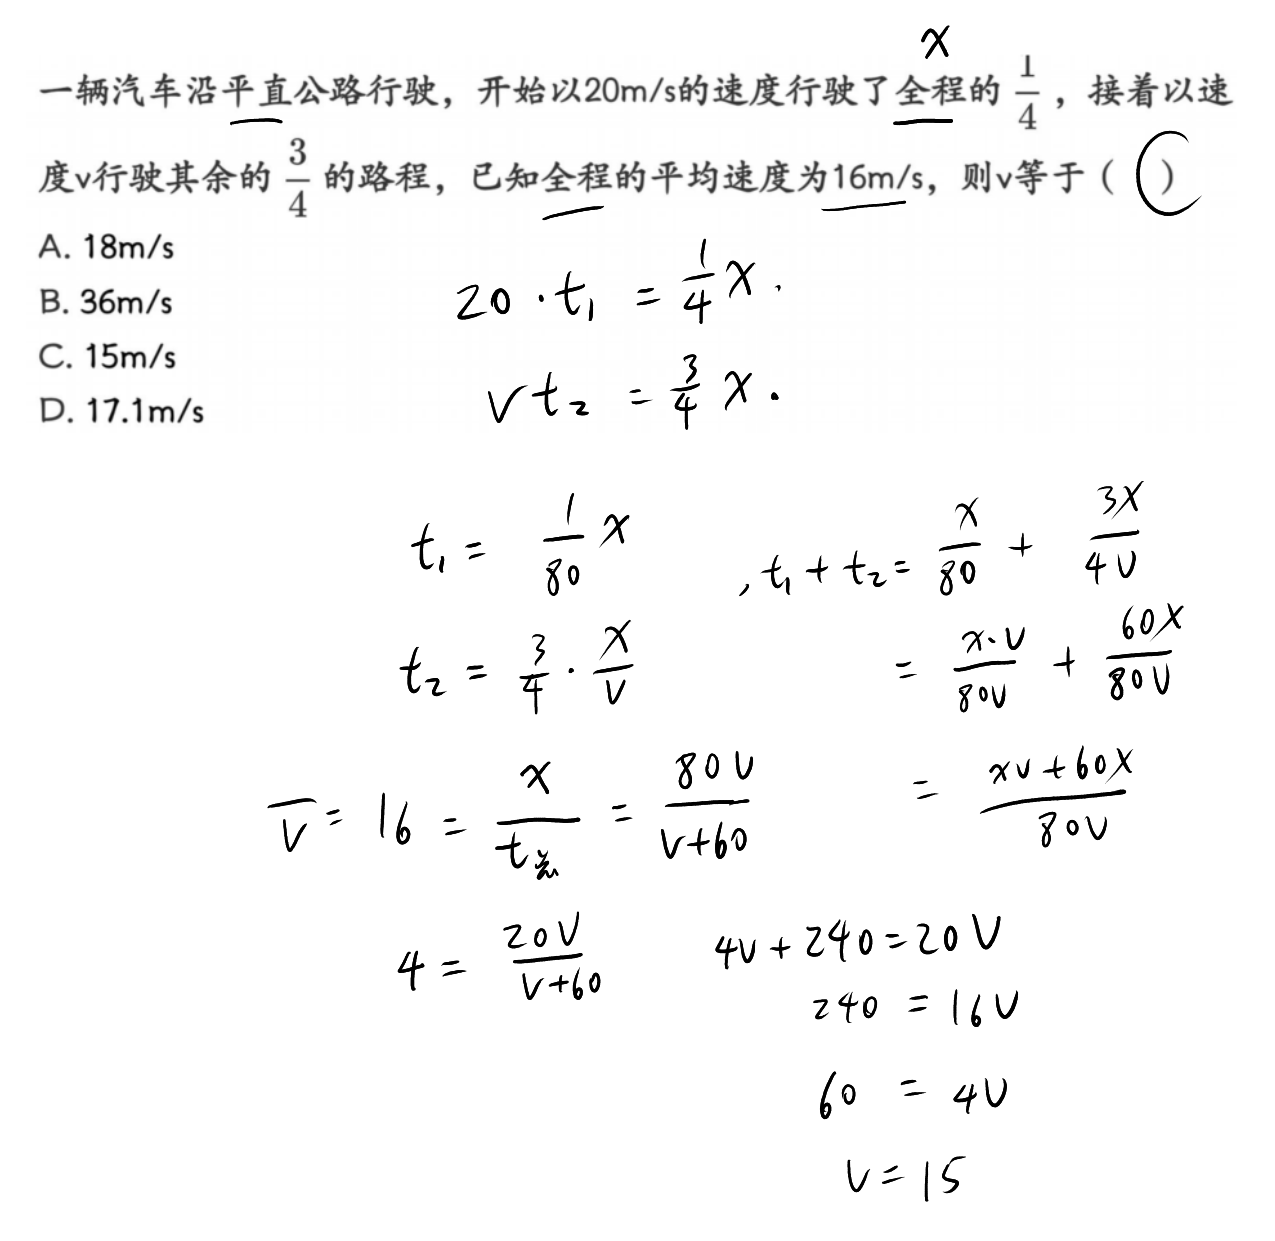 x
一辆汽车沿平直公路行驶，开始以20m/s的速度行驶了全程的 1/4 ，接着以速
度v行驶其余的 3/4 的路程，已知全程的平均速度为16m/s，则v等于（ C ）
A. 18m/s
B. 36m/s
C. 15m/s
D. 17.1m/s
20 · t₁ = 1/4 x .
v t₂ = 3/4 x .
t₁ = 1/80 x
, t₁ + t₂ = x/80 + 3x/4v
t₂ = 3/4 · x/v
= x·v/80v + 60x/80v
v̅ = 16 = x/t总 = 80v/v+60
= xv+60x/80v
4 = 20v/v+60
4v + 240 = 20v
240 = 16v
60 = 4v
v = 15